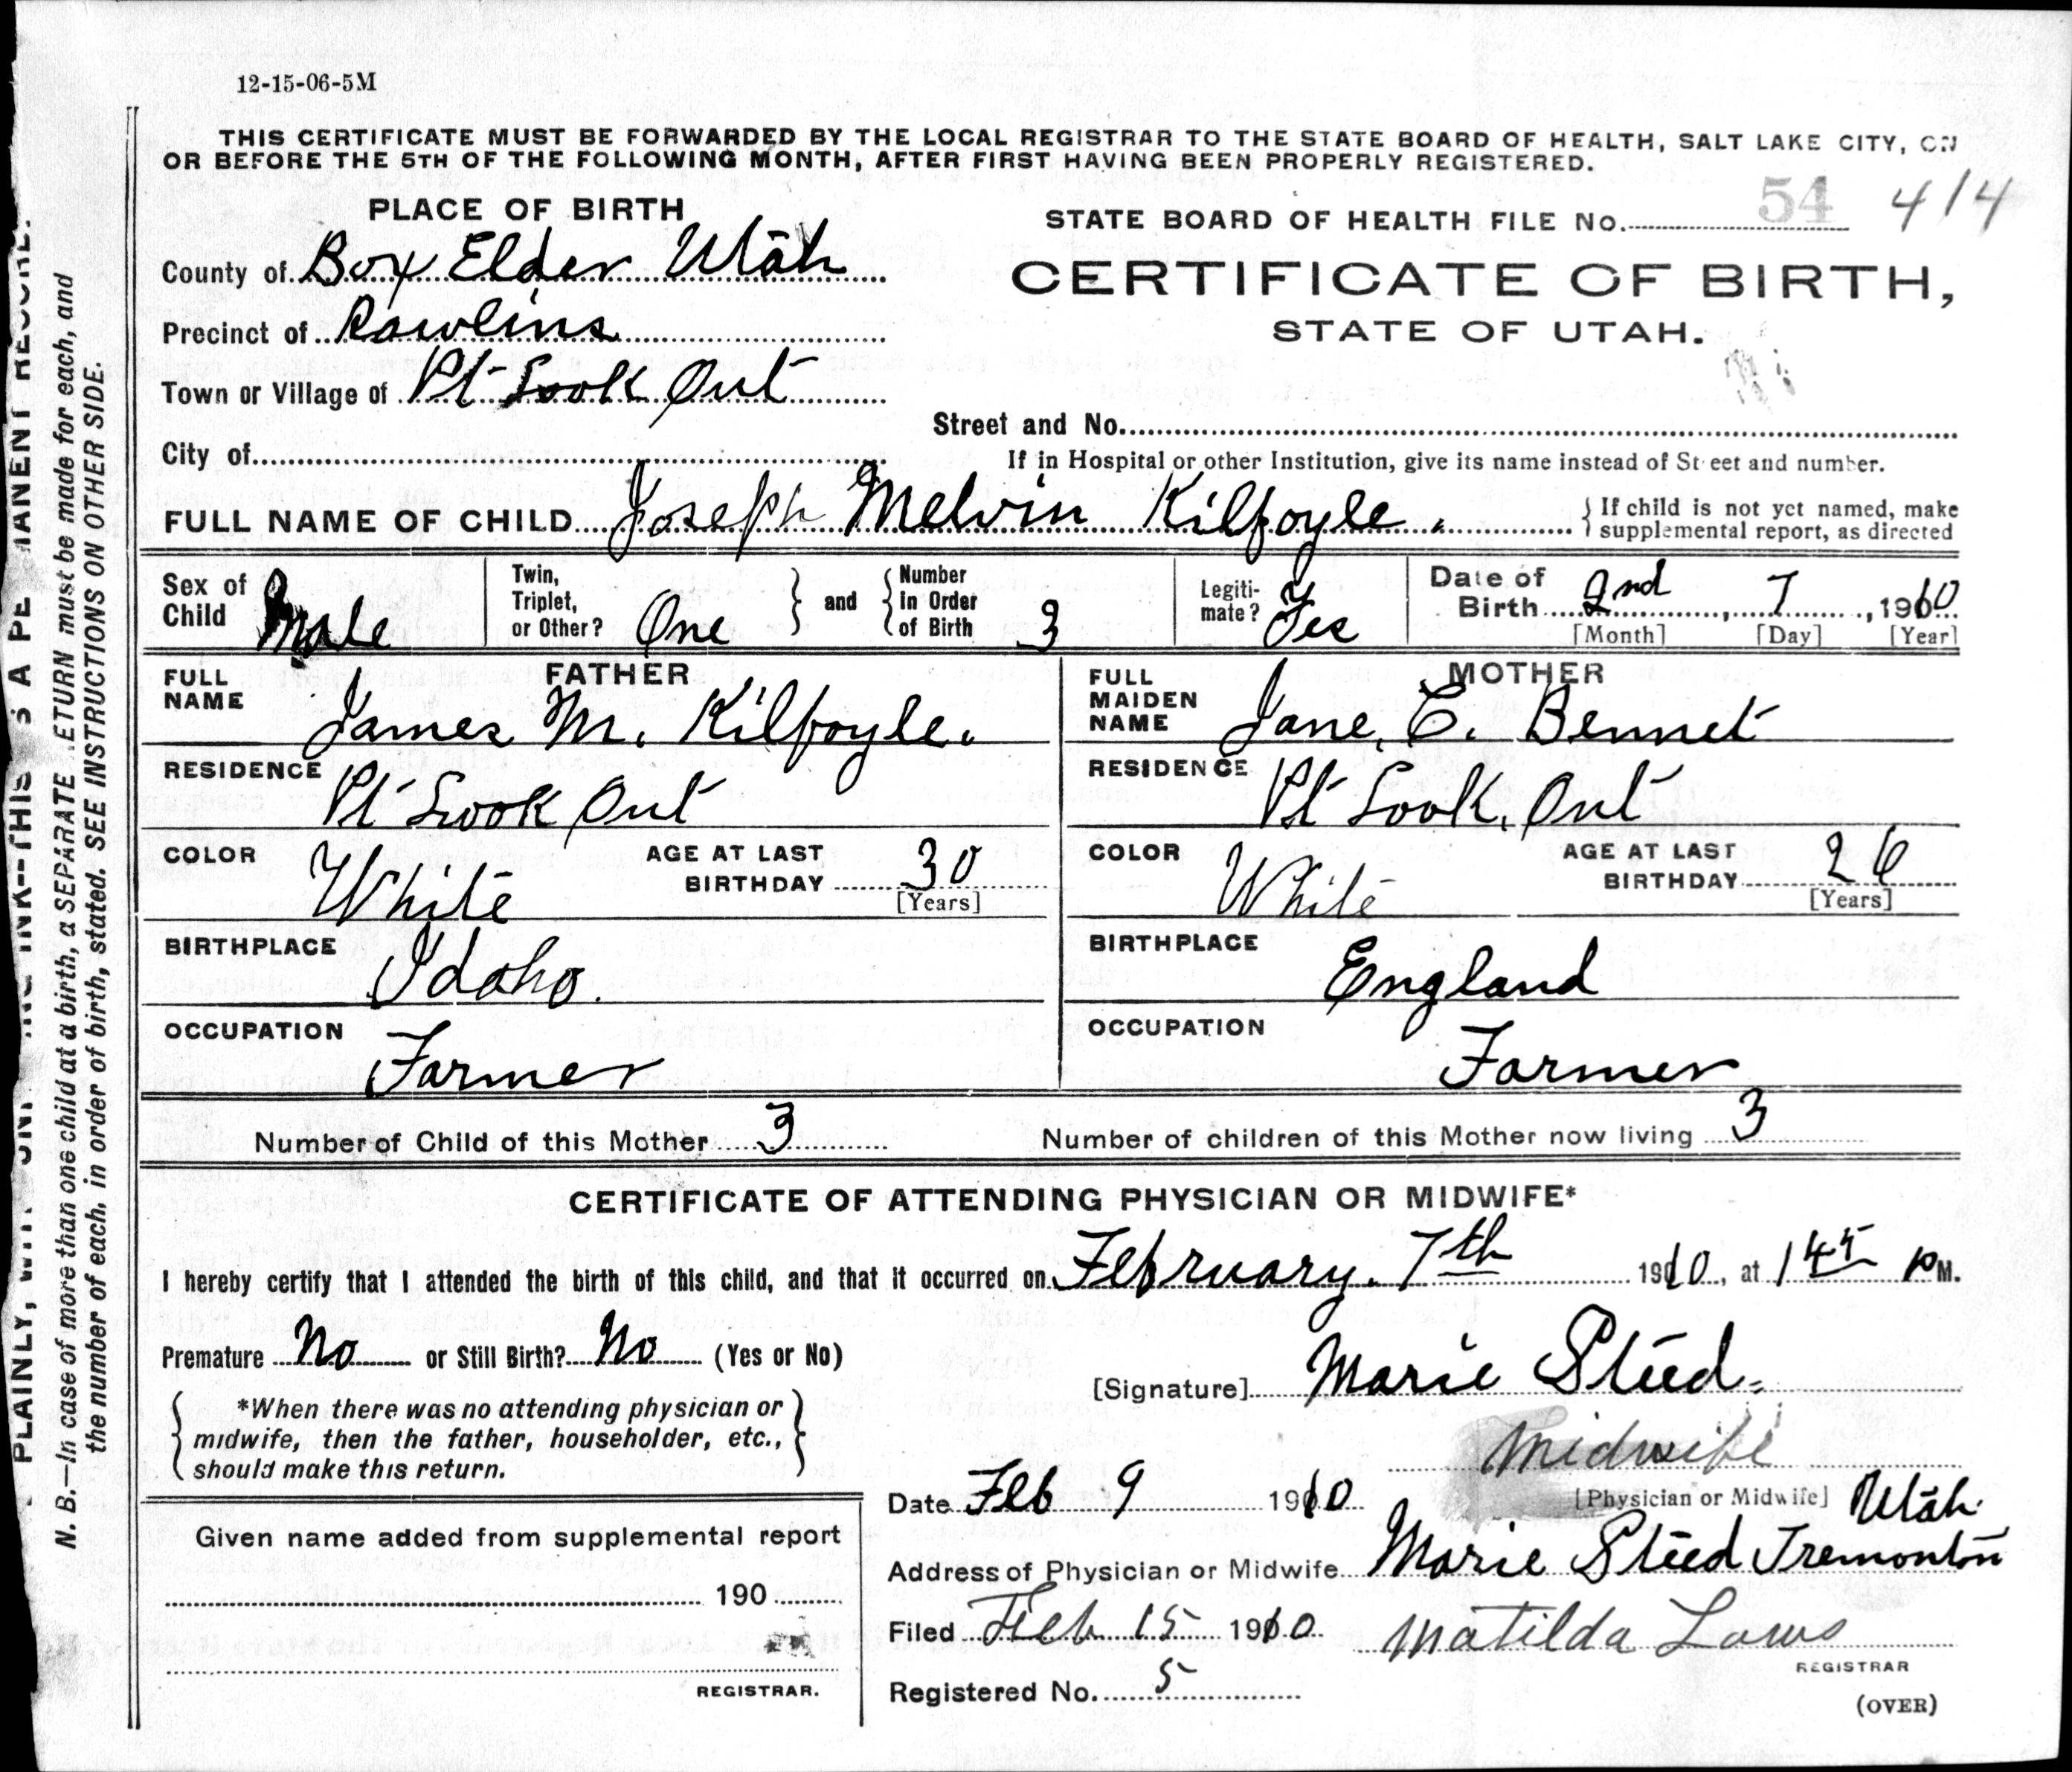 12-15-06-5M
THIS CERTIFICATE MUST BE FORWARDED BY THE LOCAL REGISTRAR TO THE STATE BOARD OF HEALTH, SALT LAKE CITY, ON
OR BEFORE THE 5TH OF THE FOLLOWING MONTH, AFTER FIRST HAVING BEEN PROPERLY REGISTERED.
PLACE OF BIRTH
County of Box Elder Utah
Precinct of Rawlins
Town or Village of Pt Look Out
City of
STATE BOARD OF HEALTH FILE No. 54 414
CERTIFICATE OF BIRTH,
STATE OF UTAH.
Street and No.
If in Hospital or other Institution, give its name instead of Street and number.
FULL NAME OF CHILD Joseph Melvin Kilfoyle.
If child is not yet named, make
supplemental report, as directed
Sex of
Child Male
Twin,
Triplet,
or Other? One
and
Number
In Order
of Birth 3
Legiti-
mate? Yes
Date of
Birth 2nd, 7, 1910
[Month] [Day] [Year]
FATHER
FULL
NAME
James M. Kilfoyle.
RESIDENCE
Pt Look Out
COLOR White
AGE AT LAST
BIRTHDAY 30
[Years]
BIRTHPLACE
Idaho.
OCCUPATION
Farmer
MOTHER
FULL
MAIDEN
NAME
Jane, E. Bennet
RESIDENCE
Pt Look, Out
COLOR White
AGE AT LAST
BIRTHDAY 26
[Years]
BIRTHPLACE
England
OCCUPATION
Farmer
Number of Child of this Mother 3
Number of children of this Mother now living 3
CERTIFICATE OF ATTENDING PHYSICIAN OR MIDWIFE*
I hereby certify that I attended the birth of this child, and that it occurred on February. 7th 1910, at 1 45 PM.
Premature No or Still Birth? No (Yes or No)
*When there was no attending physician or
midwife, then the father, householder, etc.,
should make this return.
[Signature] Marie Steed.
Midwife
[Physician or Midwife]
Date Feb 9 1910
Address of Physician or Midwife Marie Steed Tremonton
Utah.
Filed Feb 15 1910 Matilda Laws
REGISTRAR
Registered No. 5
(OVER)
Given name added from supplemental report
190
REGISTRAR.
PLAINLY, INK--THIS IS A PERMANENT RECORD.
N. B.—In case of more than one child at a birth, a SEPARATE RETURN must be made for each, and
the number of each, in order of birth, stated. SEE INSTRUCTIONS ON OTHER SIDE.